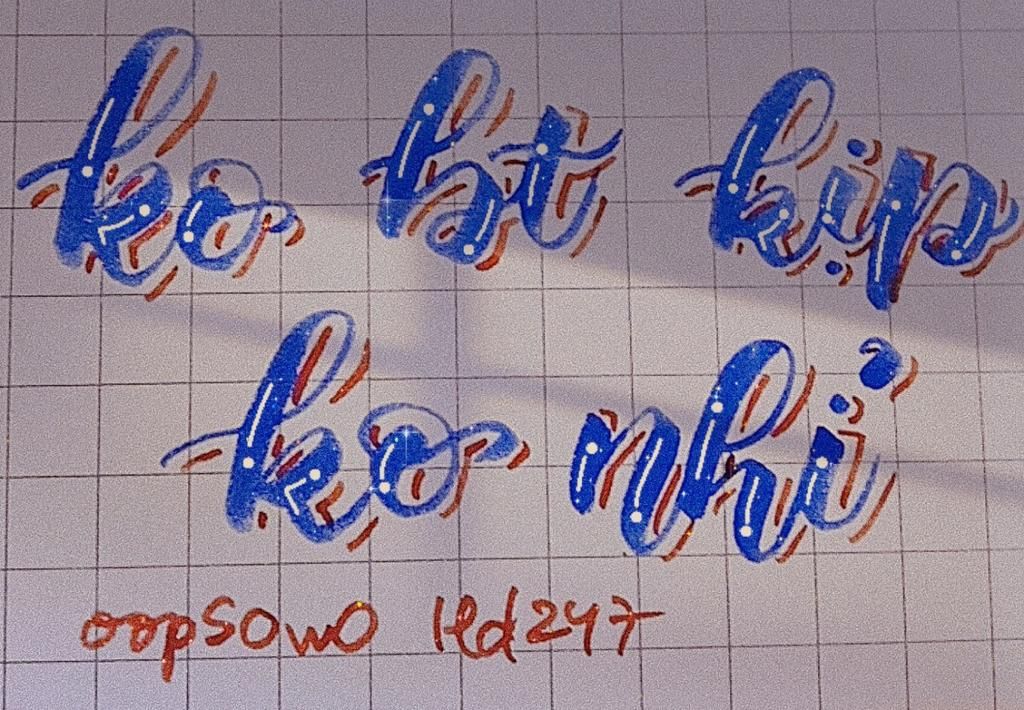 ko bt kịp
ko nhỉ
oopsowo ltd247